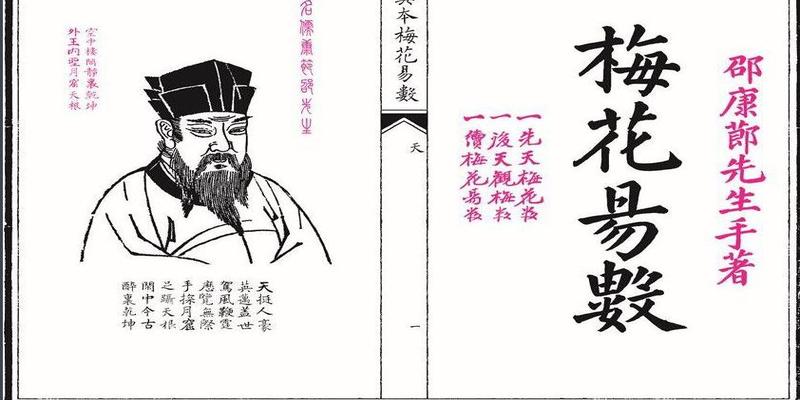 邵康莭先生手著
梅花易數
一先天梅花数
一後天觀梅数
一續梅花易数
真本梅花易數
天
一
名儒康節邵先生
空中樓閣靜裏乾坤
外王內聖月窟天根
天挺人豪
英邁蓋世
駕風鞭霆
應覽無際
手探月窟
足躡天根
閒中今古
醉裏乾坤